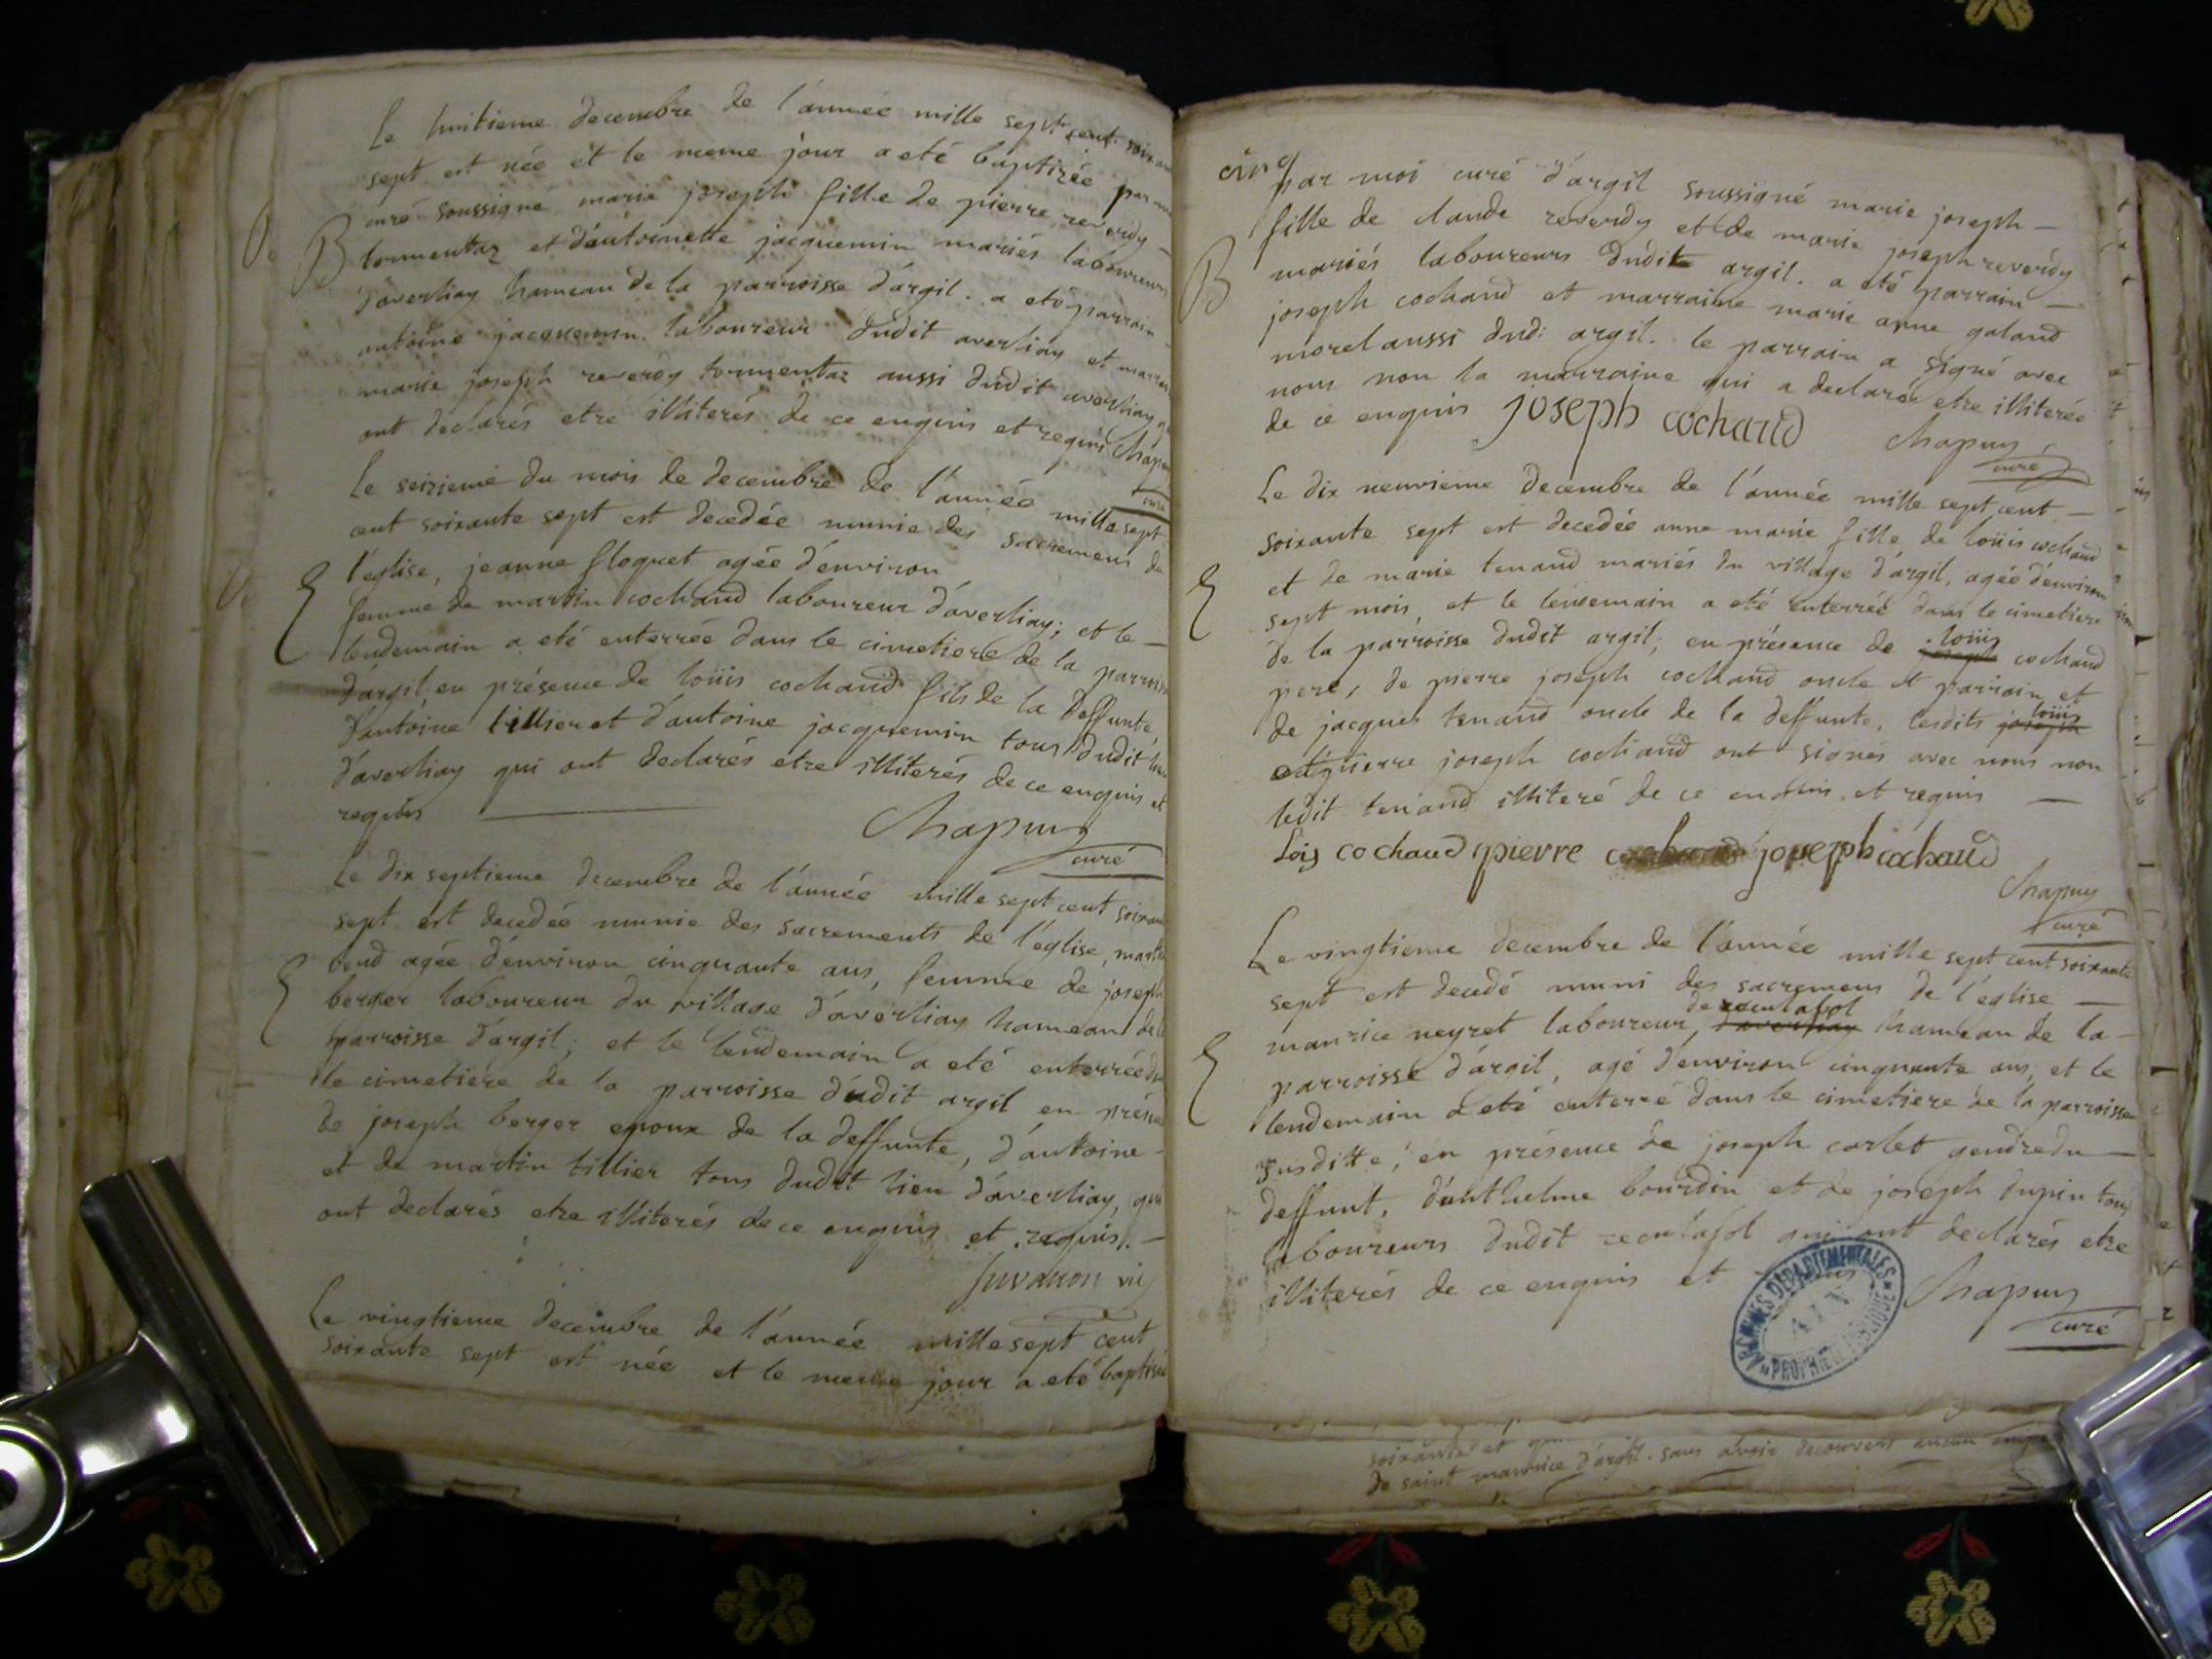 Le huitieme decembre de l'année mille sept cent
sept est née et le meme jour a eté baptizée par
curé soussigné marie joseph fille de pierre reverdy
B tormentaz et d'antoinette jacquemin mariés laboureurs
d'averliay hameau de la parroisse d'argil. a eté parrain
antoine jacquemin laboureur dudit averliay et
marie joseph reverdy tormentaz aussi dudit averliay
ont declarés etre illiterés de ce enquis et requis
curé
Le seizieme du mois de decembre de l'année mille sept
cent soixante sept est decedée munie des sacremens de
l'eglise, jeanne floquet agée d'environ
femme de martin cochand laboureur d'averliay; et le
lendemain a eté enterrée dans le cimetiere de la
d'argil; en présence de loüis cochand fils de la deffunte,
d'antoine tillier et d'antoine jacquemin tous dudit
d'averliay qui ont declarés etre illiterés de ce enquis et
requis
Chapuy
curé
Le dix septieme decembre de l'année mille sept cent
sept est decedée munie des sacrements de l'eglise,
agée d'environ cinquante ans, femme de joseph
berger laboureur du village d'averliay hameau de
parroisse d'argil; et le lendemain a eté enterrée
le cimetiere de la parroisse dudit argil en
de joseph berger epoux de la deffunte, d'antoine
et de martin tillier tous dudit lieu d'averliay,
ont declarés etre illiterés de ce enquis et requis.
Le vingtieme decembre de l'année mille sept cent
soixante sept est née et le meme jour a eté
cinq
par moi curé d'argil soussigné marie joseph
fille de claude reverdy et de marie joseph reverdy
B mariés laboureurs dudit argil. a eté parrain
joseph cochand et marraine marie anne galand
morel aussi dud: argil. le parrain a signé avec
nous non la marraine qui a declarée etre illiterée
de ce enquis joseph cochand
Chapuy
curé
Le dix neuvieme decembre de l'année mille sept cent
soixante sept est decedée anne marie fille de loüis cochand
et de marie tenand mariés du village d'argil, agée d'environ
sept mois, et le lendemain a eté enterrée dans le cimetiere
de la parroisse dudit argil; en présence de joseph loüis cochand
pere, de pierre joseph cochand oncle et parrain et
de jacques tenand oncle de la deffunte. lesdits joseph loüis
et pierre joseph cochand ont signés avec nous non
ledit tenand illiteré de ce enquis et requis
Lois cochaud pierre joseph cochaud
Chapuy
curé
Le vingtieme decembre de l'année mille sept cent soixante
sept est decedé muni des sacremens de l'eglise
maurice neyret laboureur, d'averliay de reculafol hameau de la
parroisse d'argil, agé d'environ cinquante ans, et le
lendemain a eté enterré dans le cimetiere de la parroisse
susditte, en présence de joseph carlet gendre du
deffunt, d'anthelme bourdin et de joseph dupin tous
laboureurs dudit reculafol qui ont declarés etre
illiterés de ce enquis et
Chapuy
curé
ARCHIVES DEPARTEMENTALES
AIN
PROPRIETE PUBLIQUE
soixante et
de saint maurice d'argil. sans avoir decouvert aucun